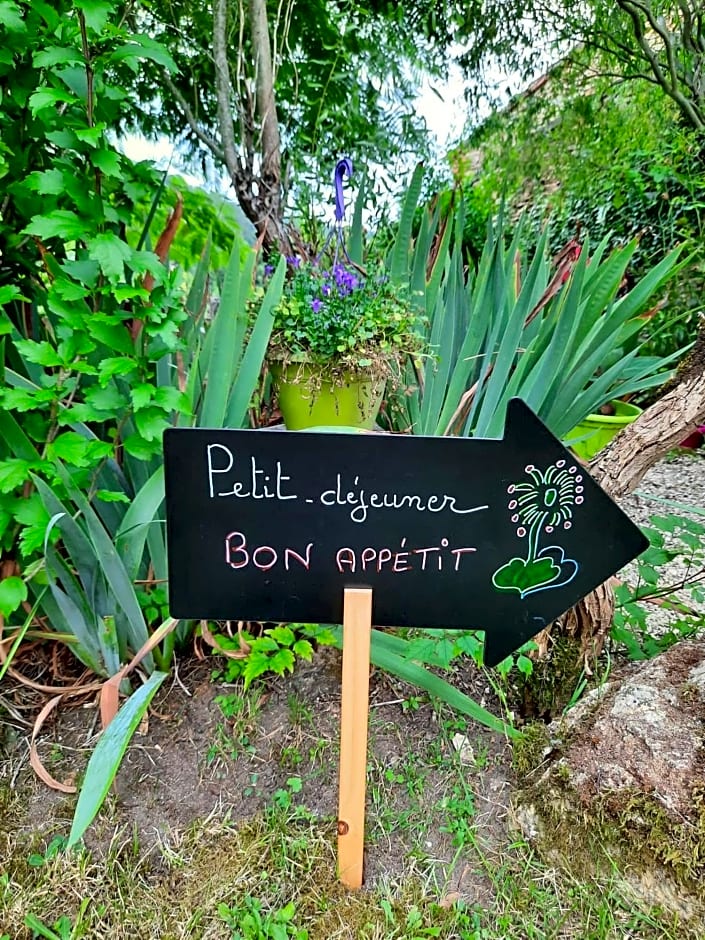 Petit-déjeuner
BON APPÉTIT